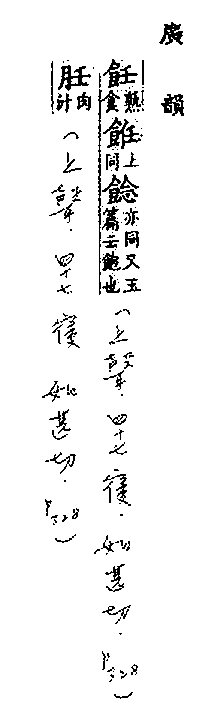 廣韻
飪熟食餁上同䭃亦同又玉篇云飽也（上聲．四十七寑．如甚切．P328）
䏕肉計（上聲．四十七寑 如甚切．P328）